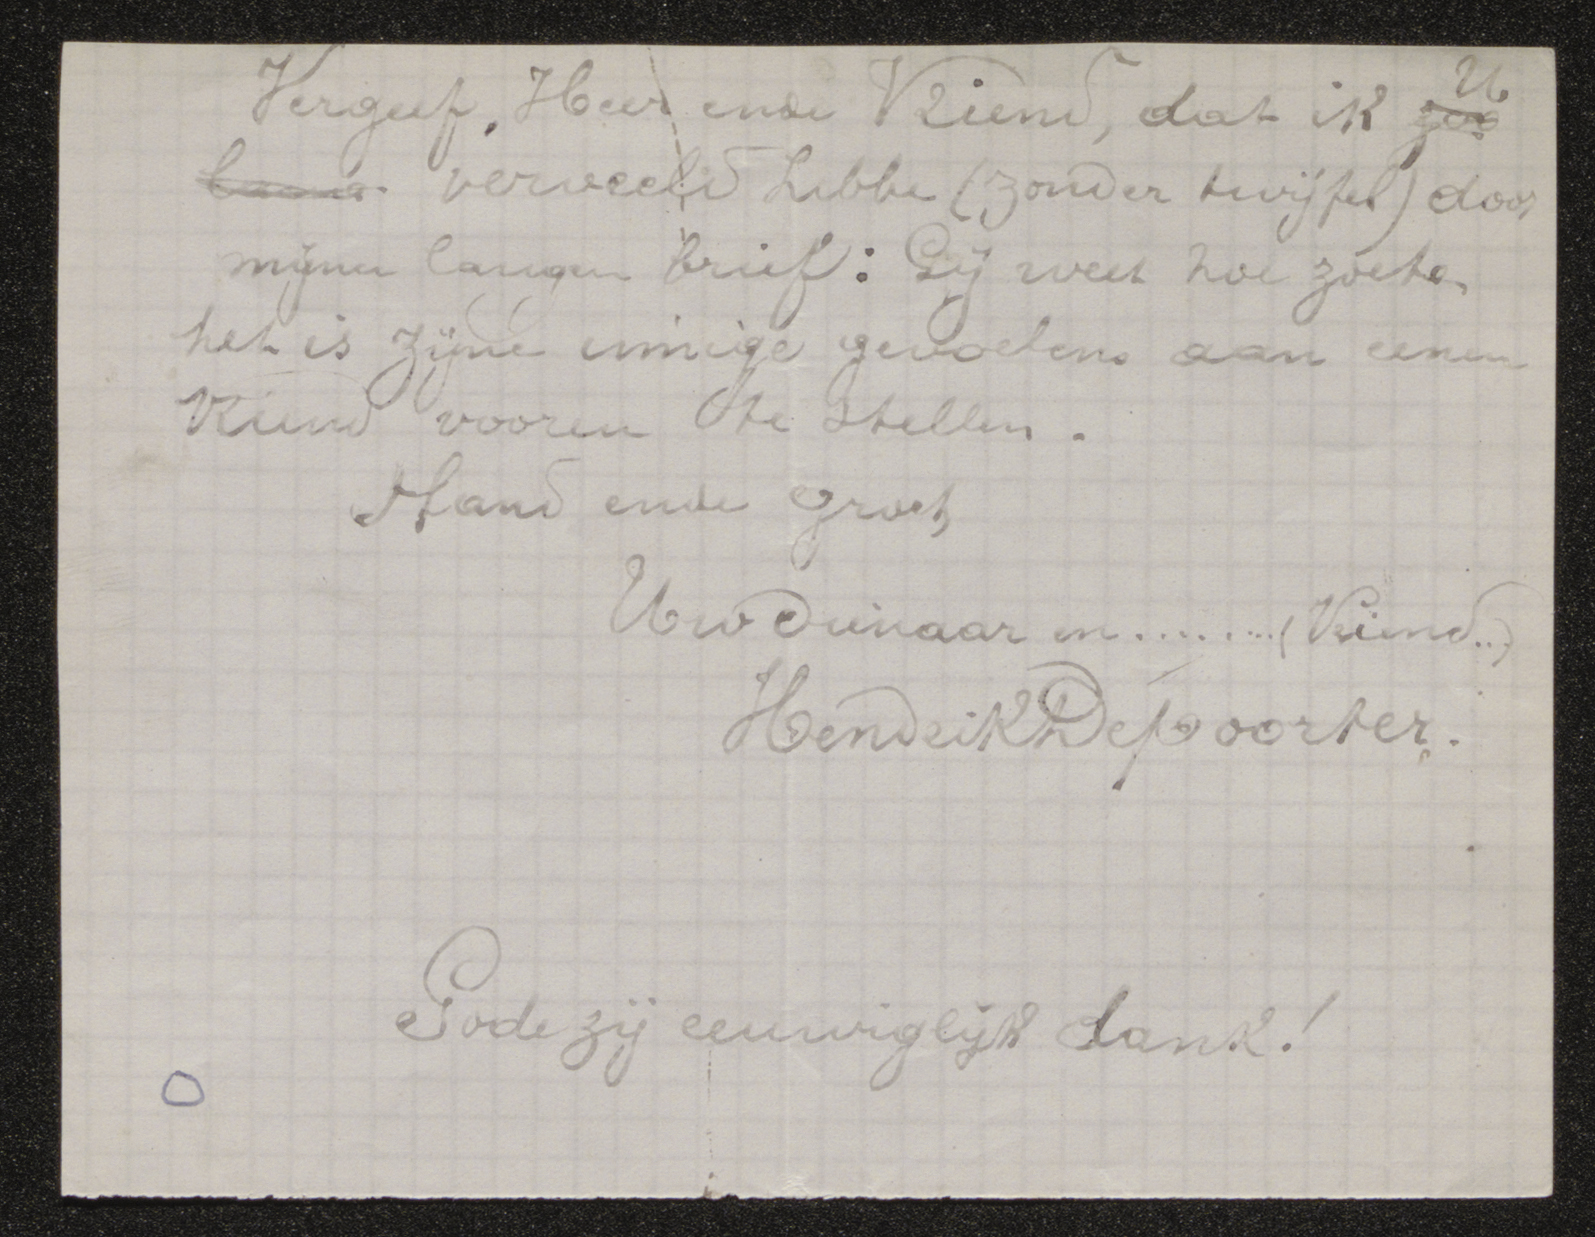 Vergeef, Heer ende Vriend, dat ik U zoo
lang verveeld hebbe (zonder twijfel) door
mijnen langen brief: Gij weet hoe zoete
het is zijne innige gevoelens aan eenen
Vriend vooren te stellen.
Hand ende groet,
Uw dienaar en ........ (Vriend..)
Hendrik Depoorter.
Gode zij eeuwiglijk dank!